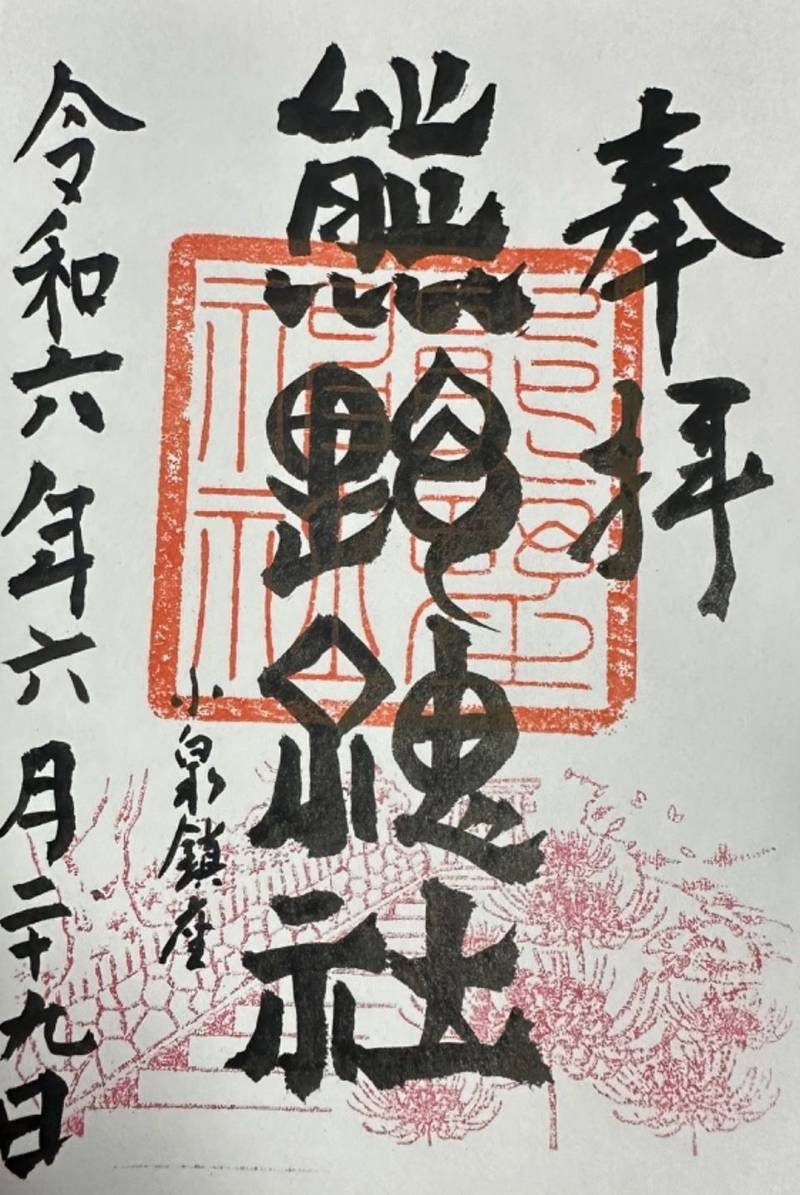 奉拝
熊野神社
小泉鎮座
令和六年六月二十九日